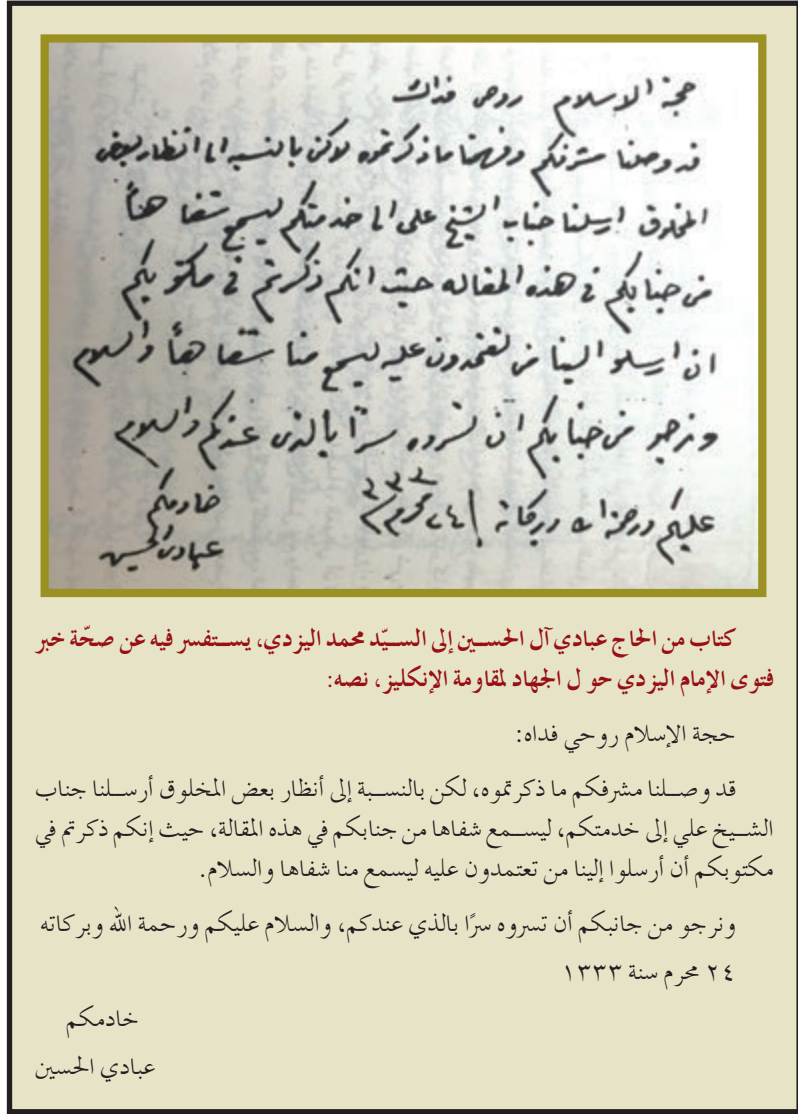 حجة الاسلام روحي فداك
قد وصلنا مشرفكم وفهمنا ما ذكرتموه لوكن بالنسبه الى انظار بعض
المخلوق ارسلنا جناب الشيخ على الى خدمتكم ليسمع شفا هاً
من جنابكم في هذه المقاله حيث انكم ذكرتم في مكتوبكم
ان ارسلو الينا من تعتمدون عليه ليسمع منا شفا هاً والسلام
ونرجو من جنابكم ان تسروه سرّاً بالذي عندكم والسلام
عليكم ورحمة الله وبركاته ٢٤ محرم ٣٣٣
خادمكم
عبادي الحسين
كتاب من الحاج عبادي آل الحسين إلى السيّد محمد اليزدي، يستفسر فيه عن صحّة خبر
فتوى الإمام اليزدي حو ل الجهاد لمقاومة الإنكليز، نصه:
حجة الإسلام روحي فداه:
قد وصلنا مشرفكم ما ذكرتموه، لكن بالنسبة إلى أنظار بعض المخلوق أرسلنا جناب
الشيخ علي إلى خدمتكم، ليسمع شفاها من جنابكم في هذه المقالة، حيث إنكم ذكرتم في
مكتوبكم أن أرسلوا إلينا من تعتمدون عليه ليسمع منا شفاها والسلام.
ونرجو من جانبكم أن تسروه سرًا بالذي عندكم، والسلام عليكم ورحمة الله وبركاته
٢٤ محرم سنة ١٣٣٣
خادمكم
عبادي الحسين